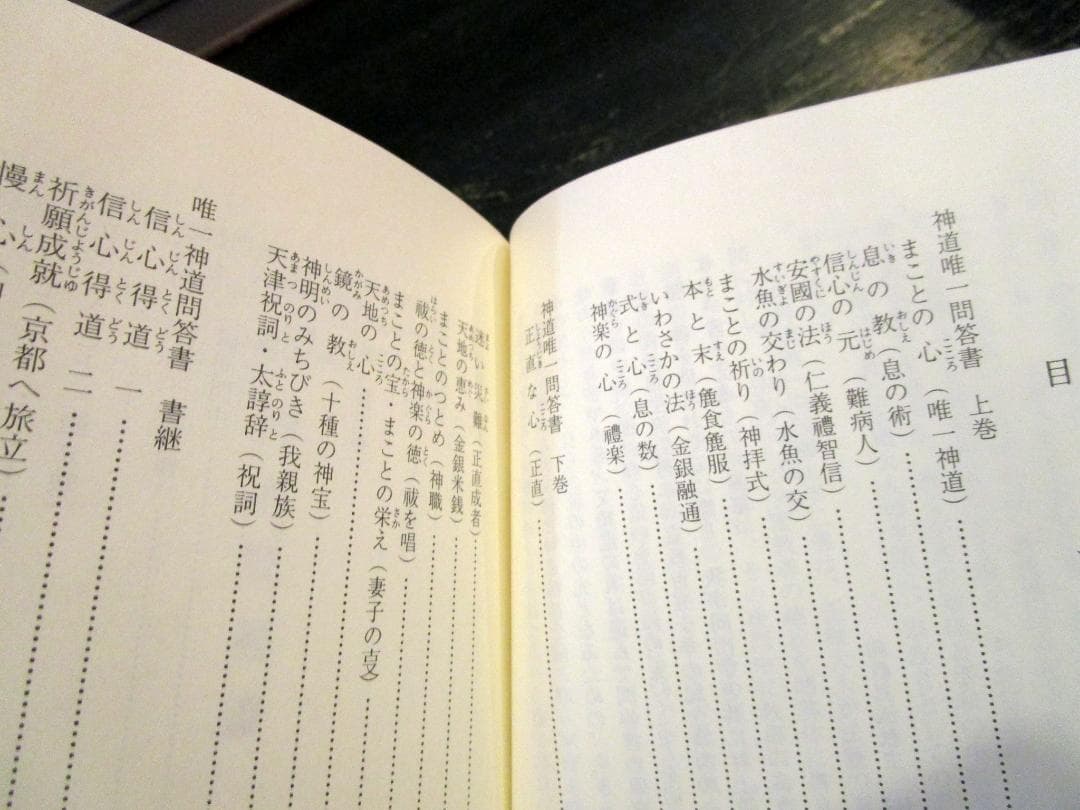 目
神道唯一問答書 上巻
まことの心（唯一神道）
息の教（息の術）
信心の元（難病人）
安國の法（仁義禮智信）
水魚の交わり（水魚の交）
まことの祈り（神拝式）
本と末（麁食麁服）
いわさかの法（金銀融通）
式と心（息の数）
神楽の心（禮楽）
神道唯一問答書 下巻
正直な心（正直）
迷い災難（正直成者）
天地の恵み（金銀米銭）
まことのつとめ（神職）
祓の徳と神楽の徳（祓を唱）
まことの宝・まことの栄え（妻子の叓）
天地の心
鏡の教（十種の神宝）
神明のみちびき（我親族）
天津祝詞・太諄辞（祝詞）
唯一神道問答書 書継
信心得道 一
信心得道 二
祈願成就（京都へ旅立）
慢心